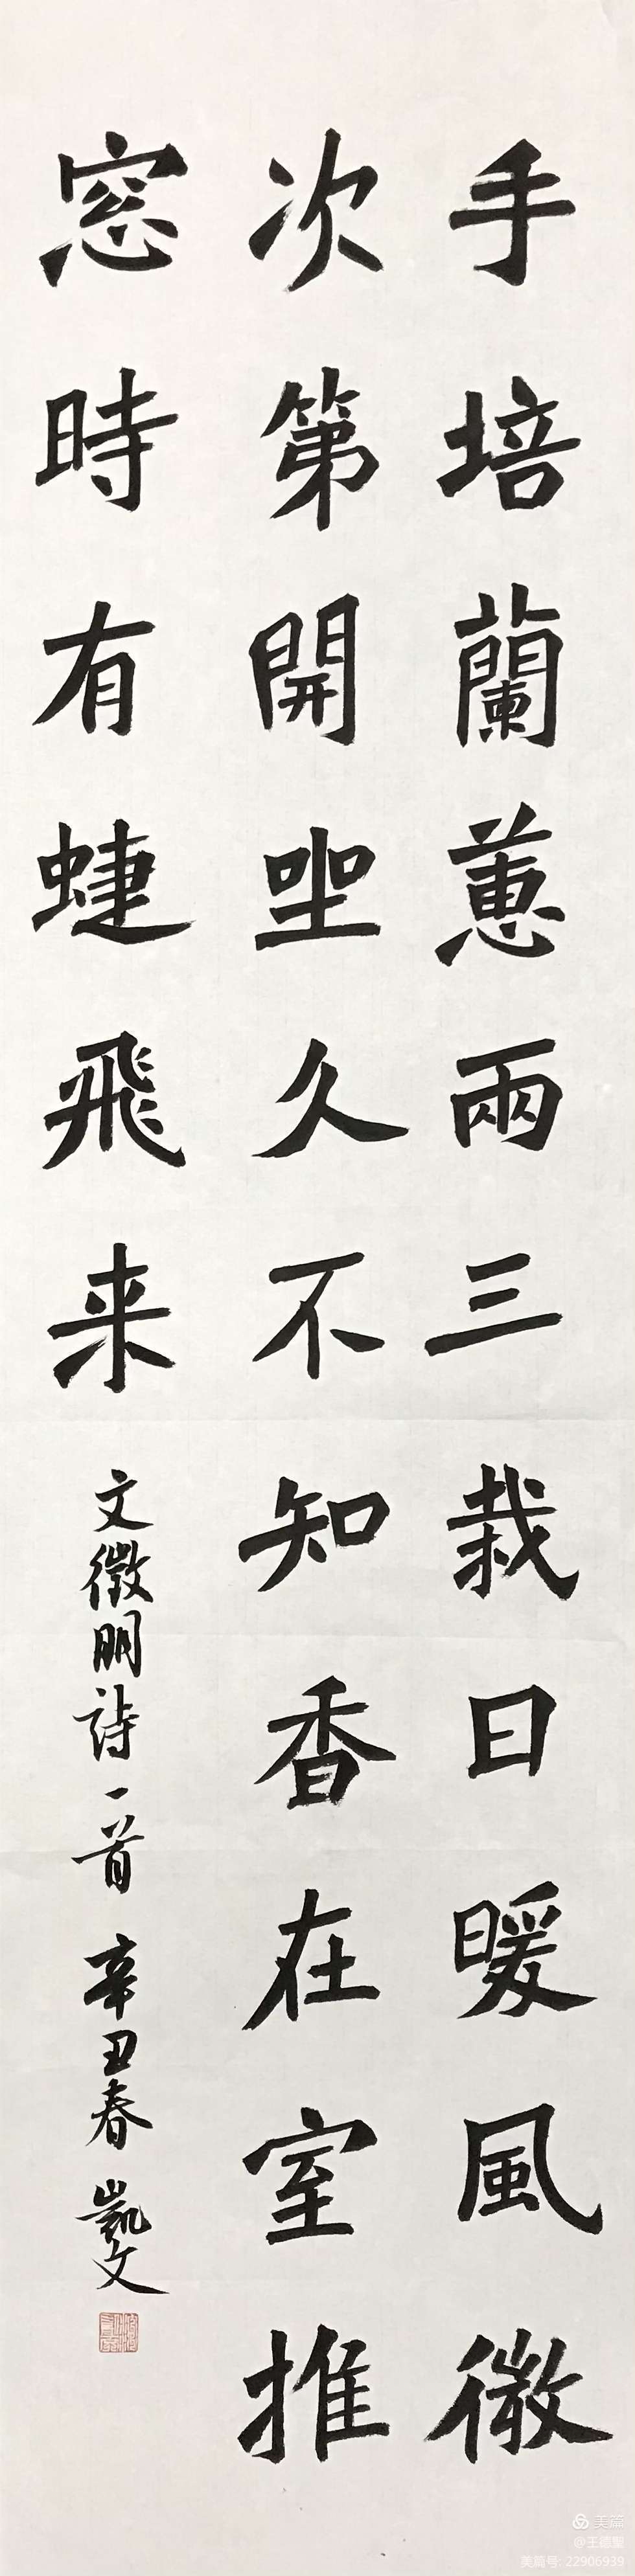 手培蘭蕙兩三栽日暖風微
次第開坐久不知香在室推
窓時有蜨飛来
文徵明詩一首 辛丑春 凱文
美篇
@王德聖
美篇号: 22906939